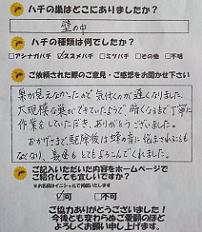 ハチの巣はどこにありましたか?
壁の中
ハチの種類は何でしたか?
□アシナガバチ ☑スズメバチ □ミツバチ □その他 □不明
ご依頼された際のご意見・ご感想をお聞かせ下さい
巣が見えなかったので気付くのが遅くなりました。
大規模な巣ができていたようで暗くなるまで丁寧に
作業をしていただき、ありがとうございました。
おかげさまで駆除後は蜂の音に悩まされることも
なくなり、家族もとてもよろこんでくれました。
ご記入いただいた内容をホームページで
ご紹介しても宜しいですか?
☑可 □不可
ご協力ありがとうございました!
今後とも変わらぬご愛顧のほど
よろしくお願い申し上げます。